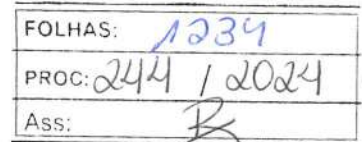 FOLHAS: 1234
PROC: 244 / 2024
Ass: